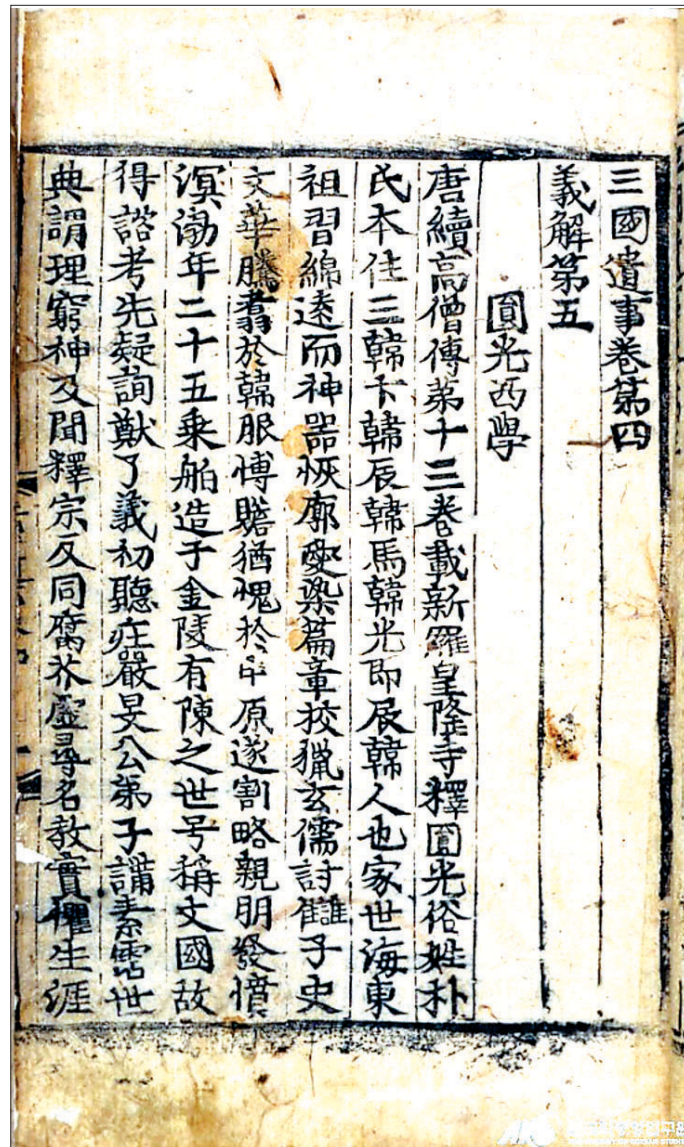 三國遺事卷第四
義解第五
圓光西學
唐續高僧傳第十三卷載新羅皇隆寺釋圓光俗姓朴
氏本住三韓卞韓辰韓馬韓光即辰韓人也家世海東
祖習綿遠而神器恢廓愛染篇章挍獵玄儒討讎子史
文華騰翥於韓服愽贍猶愧於中原遂割略親朋發憤
溟渤年二十五乗舶造于金陵有陳之世号稱文國故
得諮考先疑詢猷了義初聽庄嚴旻公弟子講素霑世
典謂理窮神及聞釋宗反同腐芥虛尋名教實懼生涯